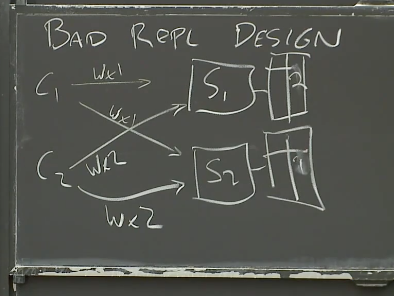 BAD REPL DESIGN
C1 Wx1 S1 2
Wx1
C2 Wx2 S2 1
Wx2